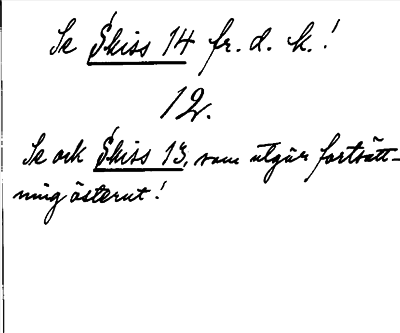 Se Skiss 14 fr. d. k.!
12.
Se ock Skiss 13, som utgör fortsätt-
ning österut!